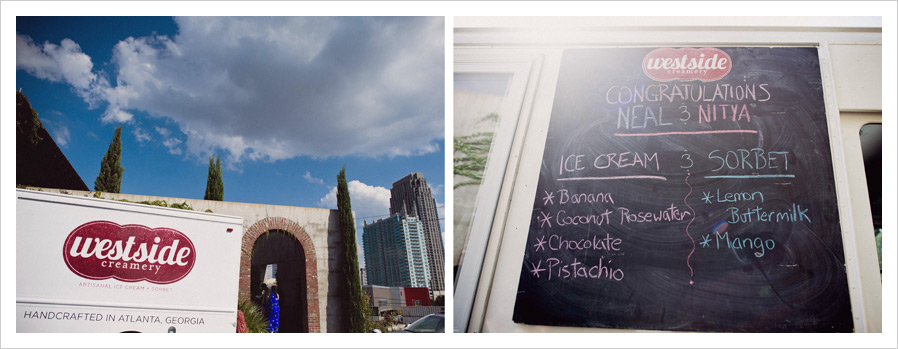 westside
creamery
ARTISANAL ICE CREAM • SORBET
HANDCRAFTED IN ATLANTA, GEORGIA
westside
creamery
CONGRATULATIONS
NEAL & NITYA
ICE CREAM & SORBET
* Banana
* Coconut Rosewater
* Chocolate
* Pistachio
* Lemon
Buttermilk
* Mango